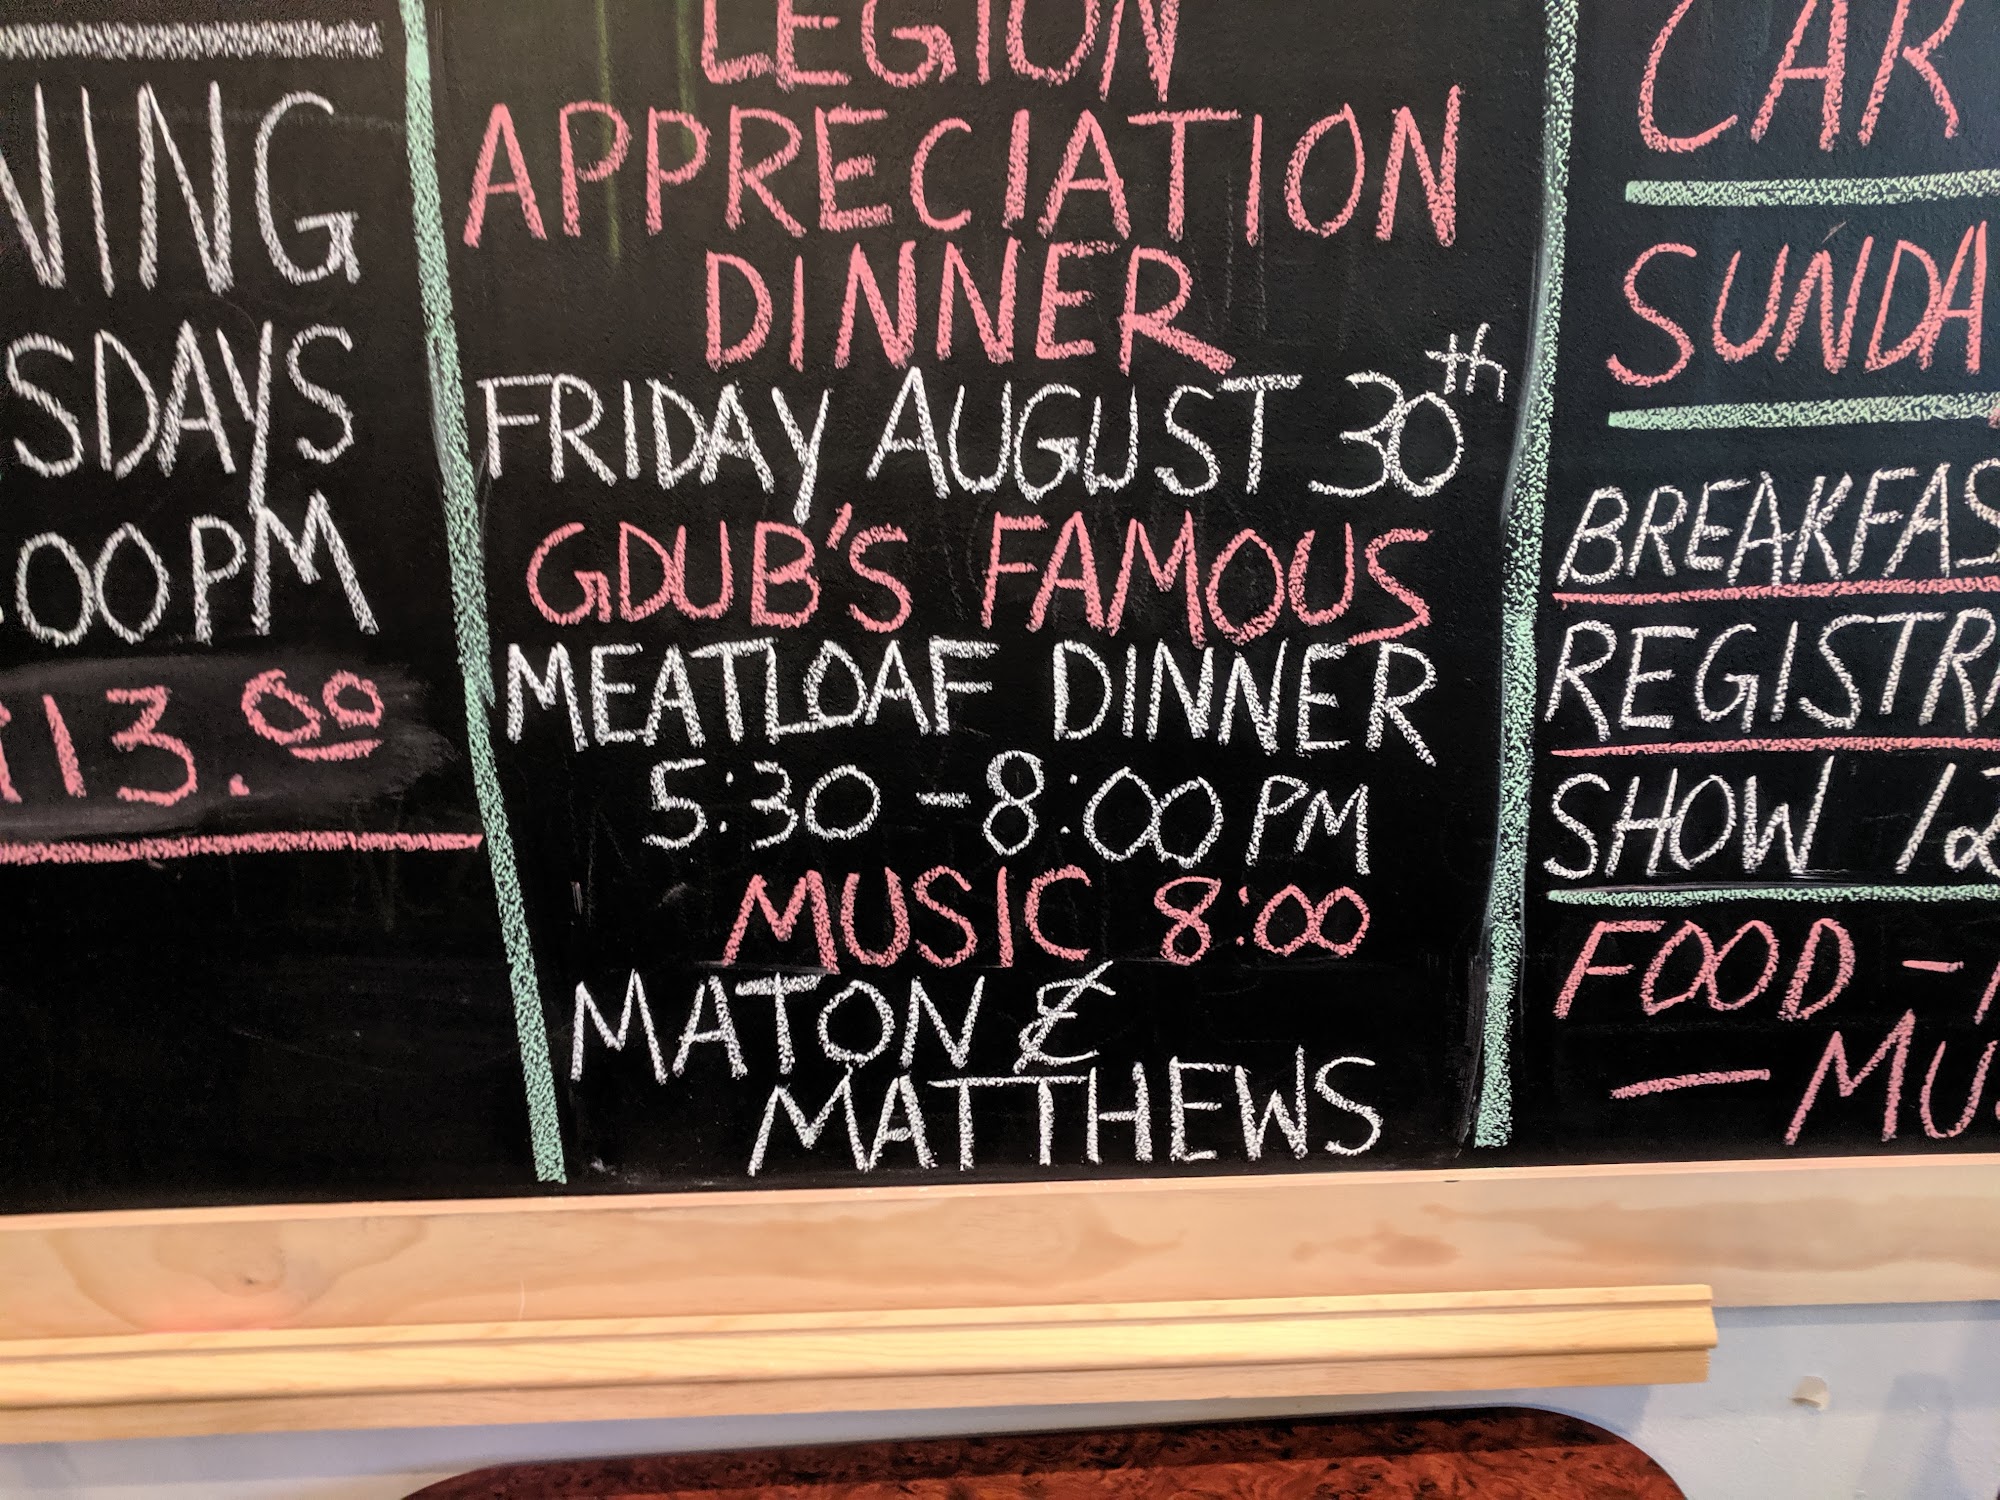 NING
SDAYS
:00PM
113.00
LEGION
APPRECIATION
DINNER
FRIDAY AUGUST 30th
GDUB'S FAMOUS
MEATLOAF DINNER
5:30-8:00PM
MUSIC 8:00
MATON &
MATTHEWS
CAR
SUNDA
BREAKFAS
REGISTR
SHOW 12
FOOD -
- MU